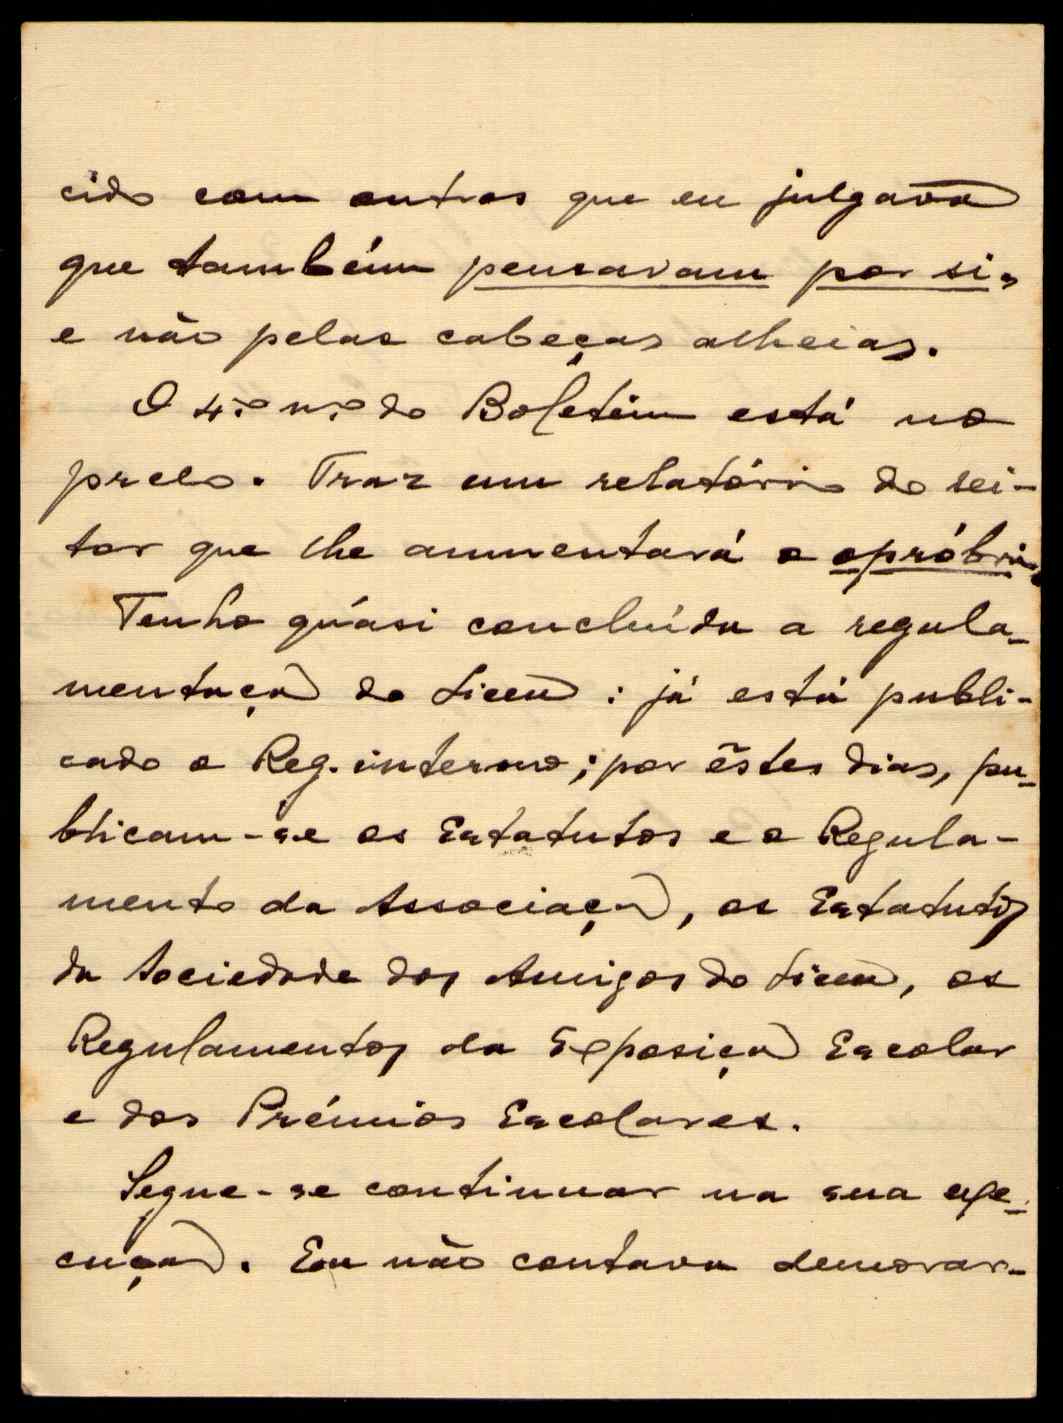 cido com outros que eu julgava
que também pensavam por si,
e não pelas cabeças alheias.
O 4.º n.º do Boletim está no
prelo. Traz um relatório do rei-
tor que lhe aumentará o opróbrio.
Tenho quási concluída a regula-
mentação do Liceu: já está publi-
cado o Reg. interno; por êstes dias, pu-
blicam-se os Estatutos e o Regula-
mento da Associação, os Estatutos
da Sociedade dos Amigos do Liceu, os
Regulamentos da Exposição Escolar
e dos Prémios Escolares.
Segue-se continuar na sua exe-
cução. Eu não contava demorar-